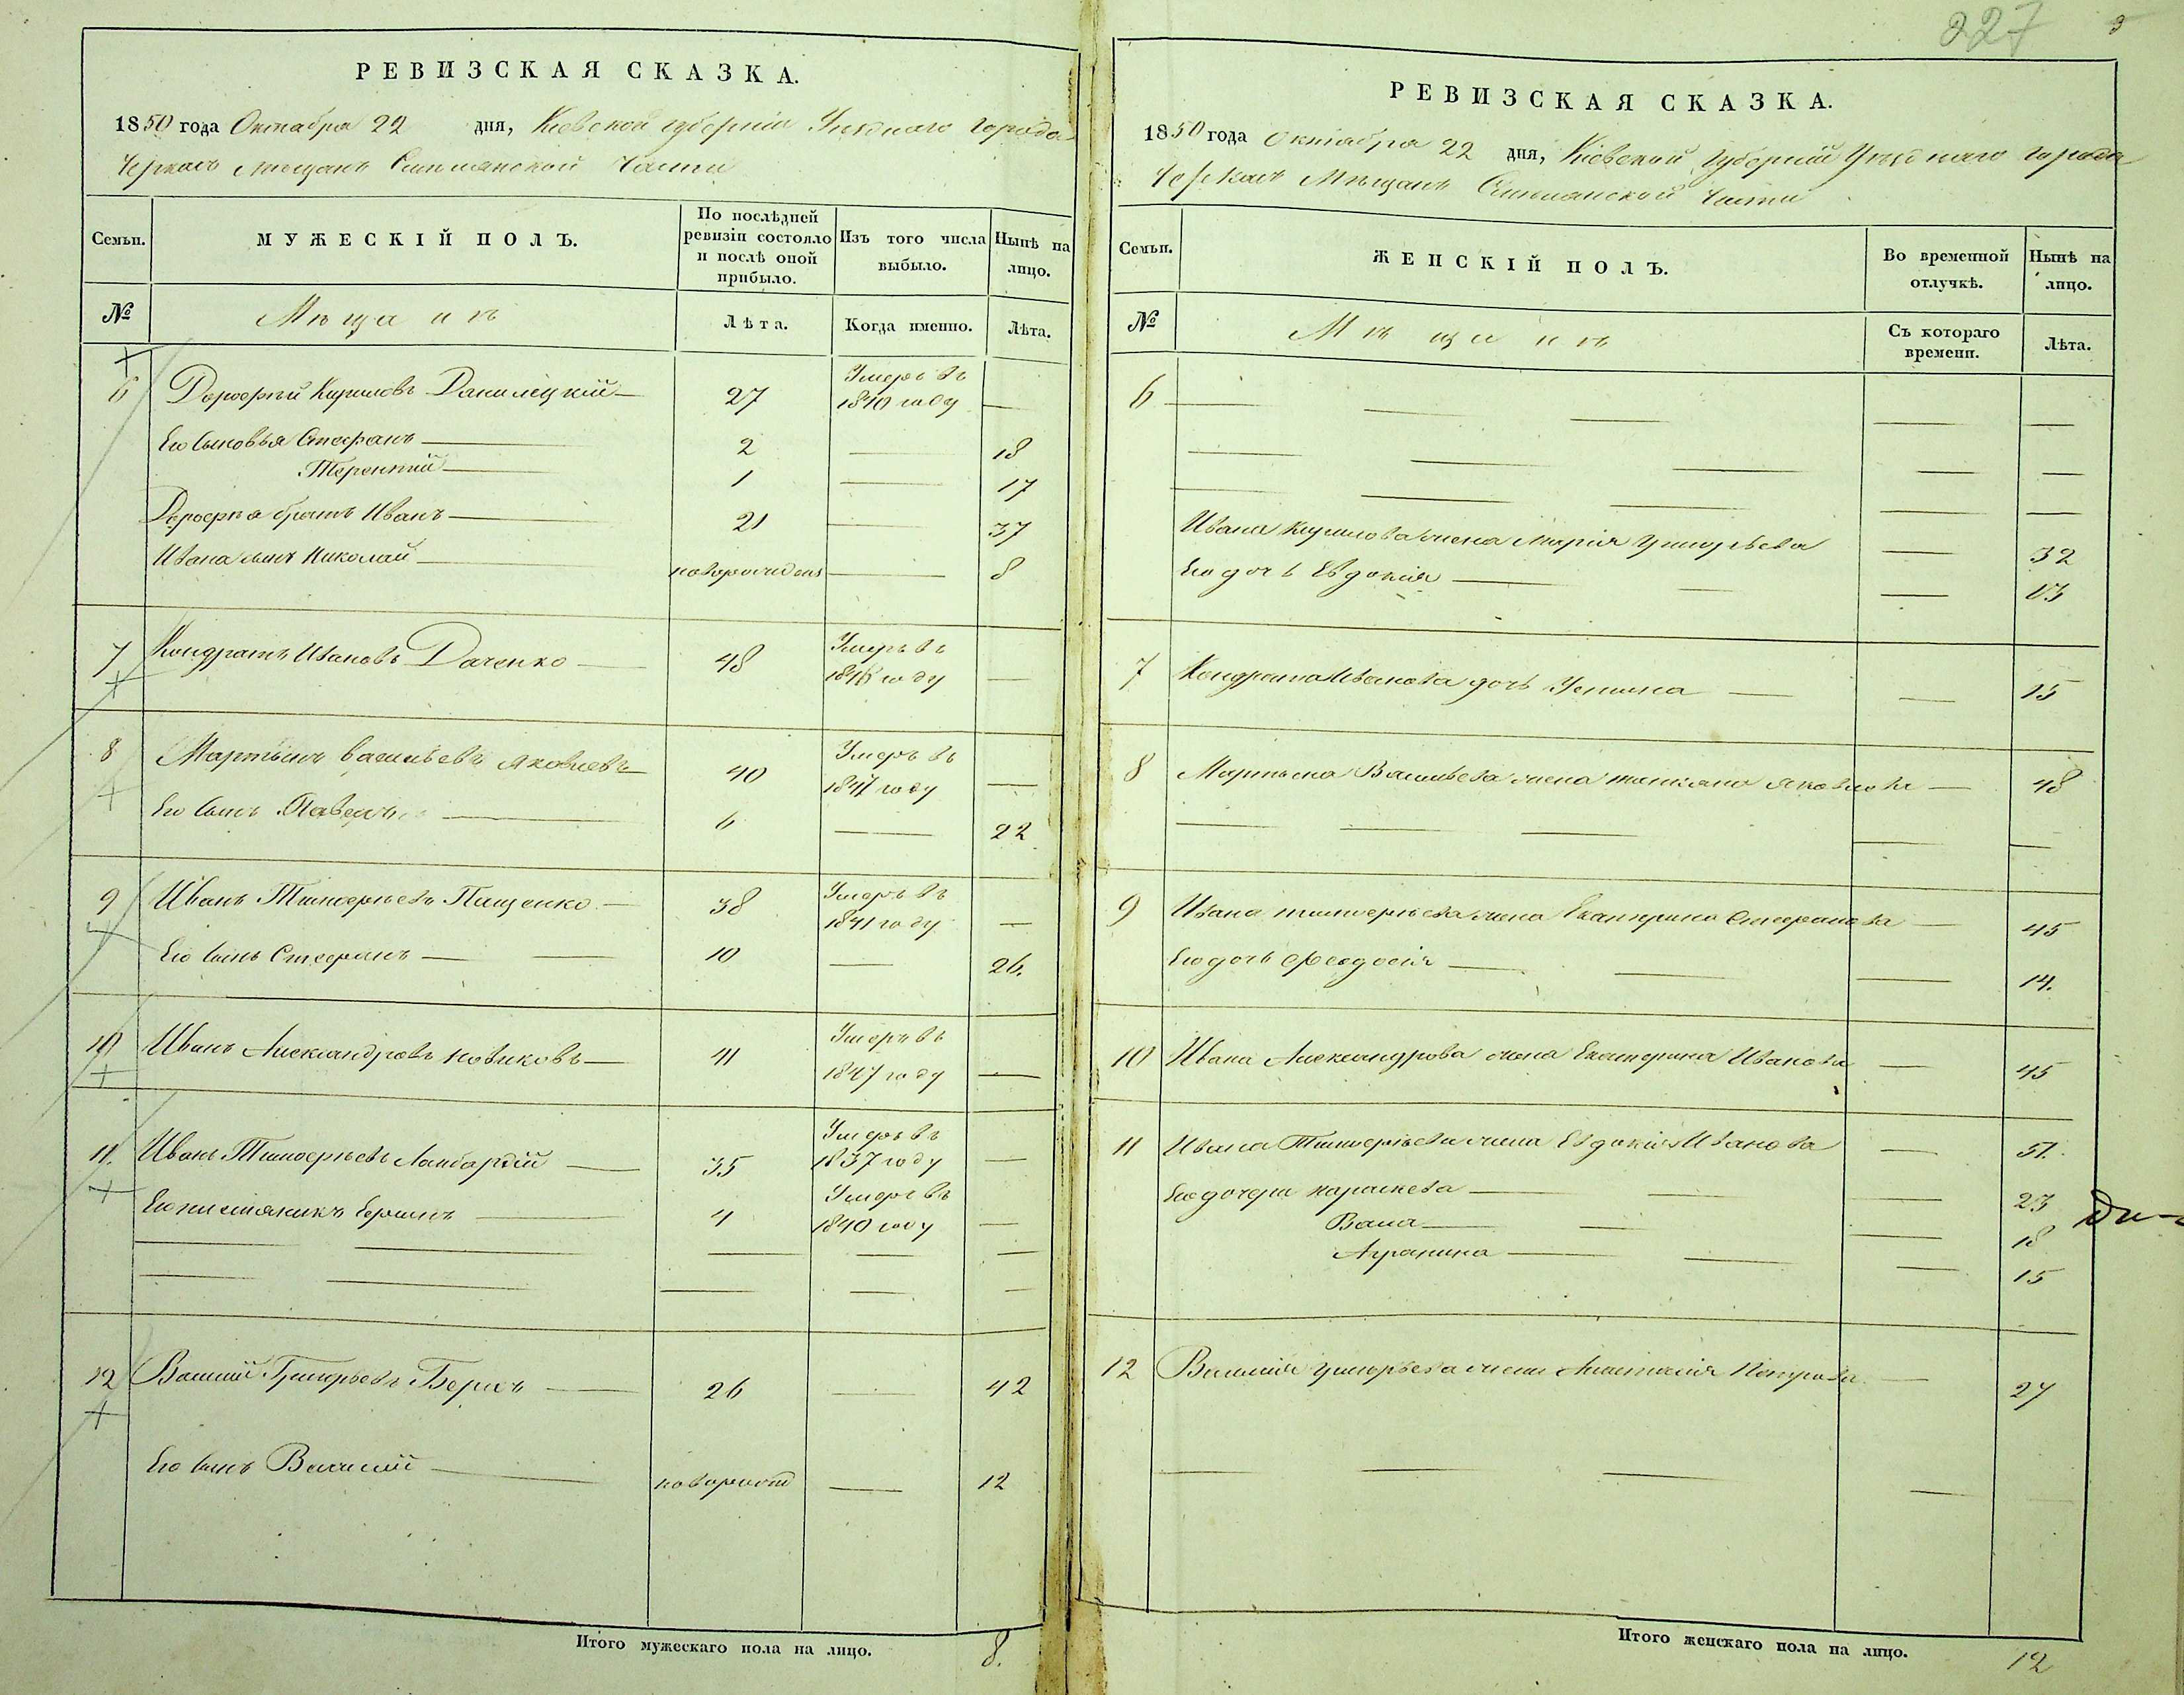 227
РЕВИЗСКАЯ СКАЗКА.
1850 года Октабра 22 дня, Кіевской губерніи Уѣзднаго города
Черкасъ Мещанъ Смѣлянской Части
Семьи.
МУЖЕСКІЙ ПОЛЪ.
По послѣдней ревизіи состояло и послѣ оной прибыло.
Изъ того числа выбыло.
Нынѣ на лицо.
№
Мѣщанъ
Лѣта.
Когда именно.
Лѣта.
6 Дорофей Кириловъ Данилецкій 27 Умеръ въ 1840 году —
Его Сыновья Стефанъ 2 — 18
Терентій 1 — 17
Дорофея братъ Иванъ 21 — 37
Ивана сынъ Николай новорожденъ — 8
7 Кондратъ Ивановъ Даченко 48 Умеръ въ году —
8 Мартынъ Васильевъ Яковлевъ 40 Умеръ въ 1847 году —
Его Сынъ Павелъ 6 — 22
9 Иванъ Тимофеевъ Пащенко 38 Умеръ въ 1841 году —
Его сынъ Стефанъ 10 — 26.
10 Иванъ Александровъ Новиковъ 41 Умеръ въ 1847 году —
11. Иванъ Тимофеевъ 35 Умеръ въ 1837 году —
Его племяникъ 4 Умеръ въ 1840 году —
12 Василій Григорьевъ 26 — 42
Его сынъ Василій новорожд — 12
Итого мужескаго пола на лицо. 8.
РЕВИЗСКАЯ СКАЗКА.
1850 года Октабра 22 дня, Кіевской Губерніи Уѣзднаго города
Черкасъ Мѣщанъ Смѣлянской Части
Семьи.
ЖЕНСКІЙ ПОЛЪ.
Во временной отлучкѣ.
Нынѣ на лицо.
№
Мѣщанъ
Съ котораго времени.
Лѣта.
6 — — — — —
Ивана Кирилова жена Марія Григорьева — 32
Его дочь Евдокія — 13
7 Кондрата Иванова дочь Устина — 15
8 Мартына Васильева жена татіана Яковлева — 48
9 Ивана тимофеева жена Екатерина Стефанова — 45
Его дочь Феодосія — 14.
10 Ивана Александрова жена Екатерина Иванова — 45
11 Ивана Тимофеева жена Евдокія Иванова — 51.
Его дочери параскева — 23
— 18
Агрипина — 15
12 Василія григорьева жена Анастасія Петрова — 27
Итого женскаго пола на лицо. 12